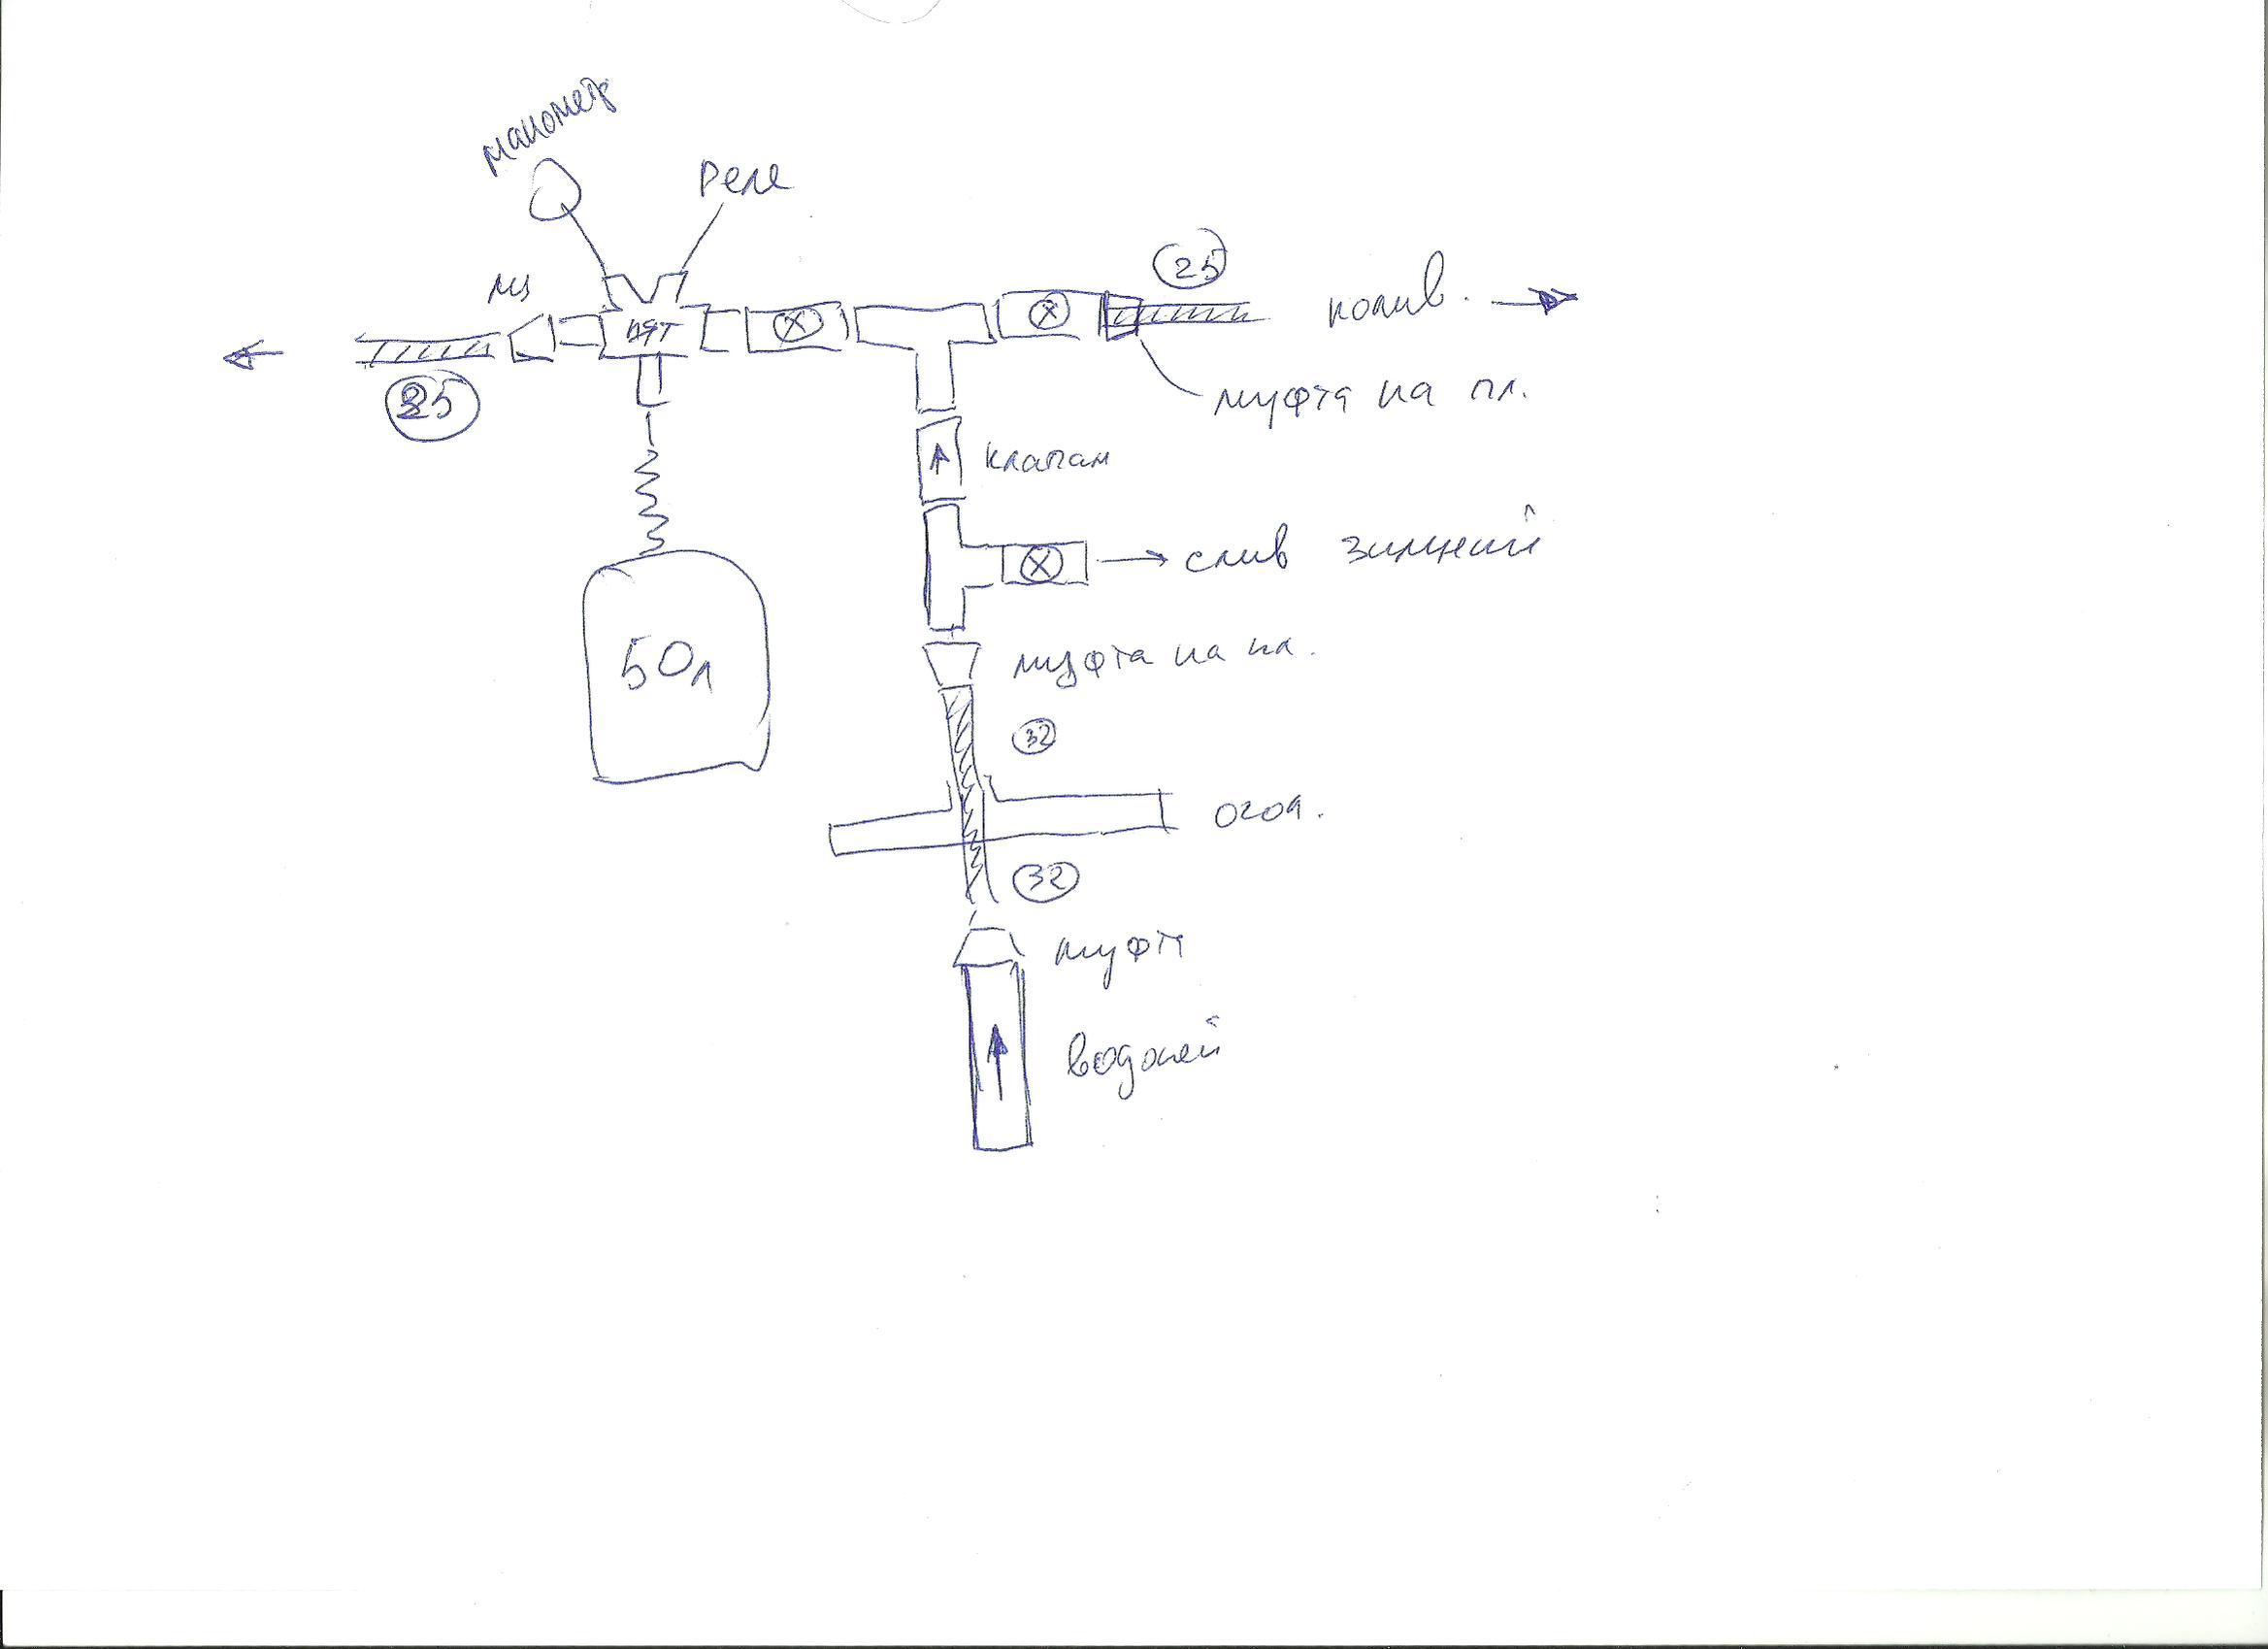 манометр
Реле
25
мф
пят
полив.
25
муфта на пл.
клапан
слив зимний
50л
муфта на пл.
32
огол.
32
муфт
водолей